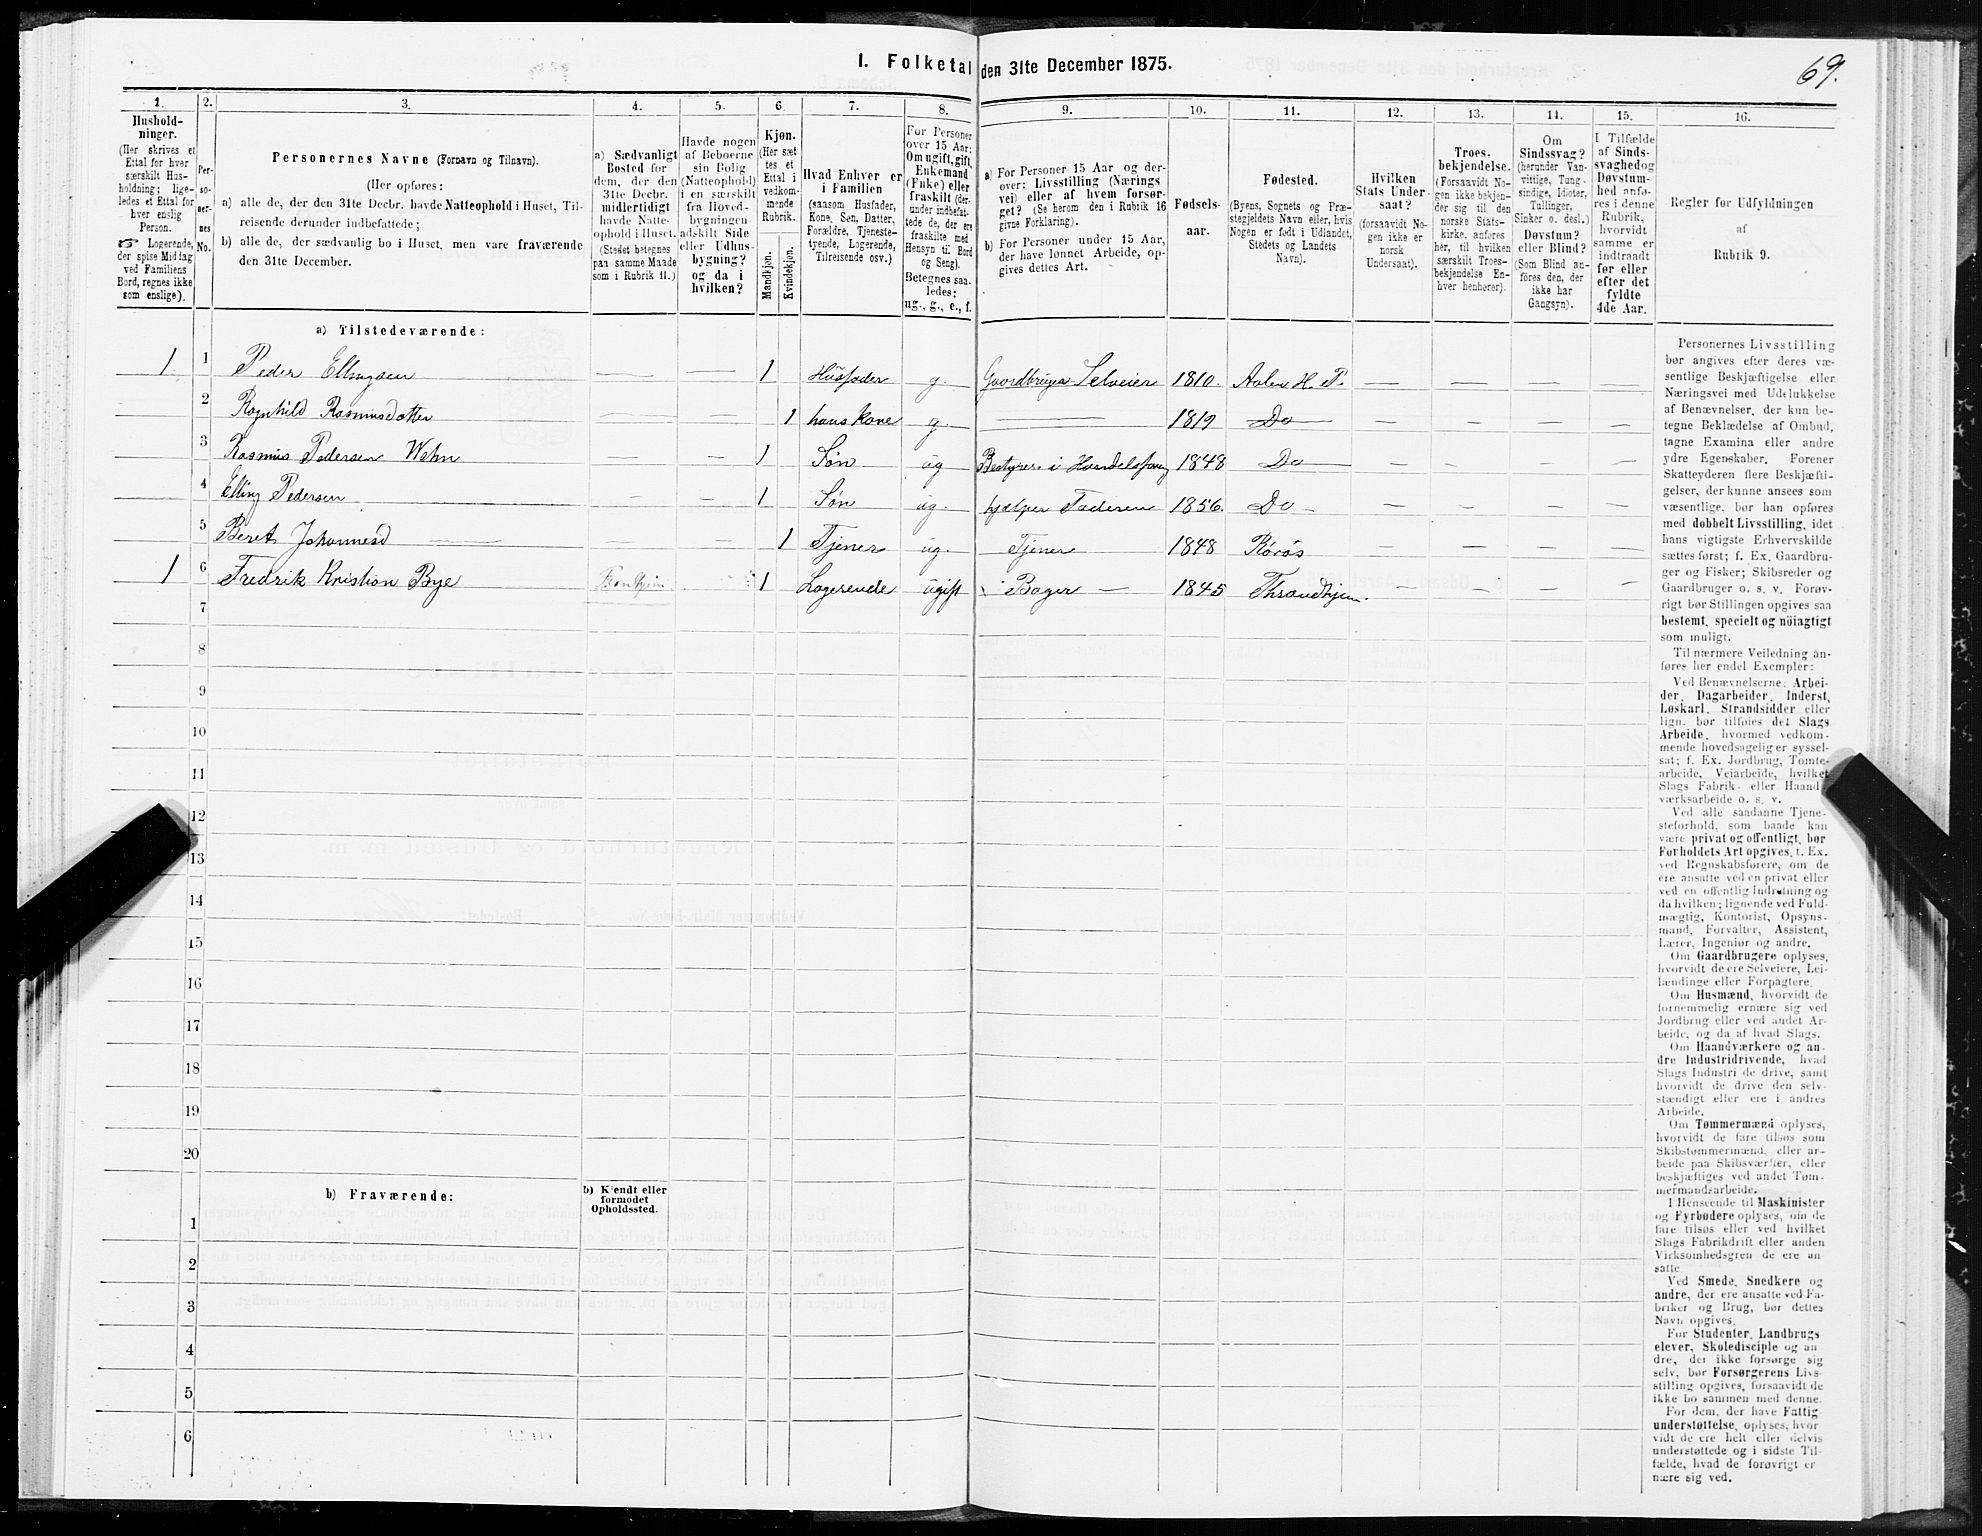 I. Folketal den 31te December 1875.
69.
1. 2. 3. 4. 5. 6. 7. 8. 9. 10. 11. 12. 13. 14. 15. 16.
Hushold-
ninger.
(Her skrives et
Ettal for hver
særskilt Hus-
holdning; lige-
ledes et Ettal for
hver enslig
Person.
☞ Logerende,
der spise Middag
ved Familiens
Bord, regnes ikke
som enslige).
Per-
so-
ner-
nes
No.
Personernes Navne (Fornavn og Tilnavn).
(Her opføres:
a) alle de, der den 31te Decbr. havde Natteophold i Huset, Til-
reisende derunder indbefattede;
b) alle de, der sædvanlig bo i Huset, men vare fraværende
den 31te December.
a) Sædvanligt
Bosted for
dem, der den
31te Decbr.
midlertidigt
havde Natte-
ophold i Huset.
(Stedet betegnes
paa samme Maade
som i Rubrik 11.)
Havde nogen
af Beboerne
sin Bolig
(Natteophold)
i en særskilt
fra Hoved-
bygningen
adskilt Side
eller Udhus-
bygning?
og da i
hvilken?
Kjøn.
(Her sæt
tes et
Ettal i
vedkom-
mende
Rubrik.
Mandkjøn.
Kvindekjøn.
Hvad Enhver er
i Familien
(saasom Husfader,
Kone, Søn, Datter,
Forældre, Tjeneste-
tyende, Logerende,
Tilreisende osv.)
For Personer
over 15 Aar:
Om ugift, gift,
Enkemand
(Enke) eller
fraskilt (der-
under indbefat-
tede de, der ere
fraskilte med
Hensyn til Bord
og Seng).
Betegnes saa-
ledes:
ug., g., e., f.
a) For Personer 15 Aar og der-
over: Livsstilling (Nærings
vei) eller af hvem forsør-
get? (Se herom den i Rubrik 16
givne Forklaring).
b) For Personer under 15 Aar,
der have lønnet Arbeide, op-
gives dettes Art.
Fødsels-
aar.
Fødested.
(Byens, Sognets og Præ-
stegjeldets Navn eller, hvis
Nogen er født i Udlandet,
Stedets og Landets
Navn).
Hvilken
Stats Under-
saat?
(forsaavidt No-
gen ikke er
norsk
Undersaat).
Troes-
bekjendelse.
(Forsaavidt No-
gen ikke bekjen-
der sig til den
norske Stats-
kirke, anføres
her, til hvilken
særskilt Troes-
bekjendelse En-
hver henhører).
Om
Sindssvag?
(herunder Van-
vittige, Tung-
sindige, Idioter,
Tullinger,
Sinker o. desl.)
Døvstum?
eller Blind?
(Som Blind an-
føres den, der
ikke har
Gangsyn).
I Tilfælde
af Sinds-
svaghed og
Døvstum-
hed anfø-
res i denne
Rubrik,
hvorvidt
samme er
indtraadt
før eller
efter det
fyldte
4de Aar.
Regler for Udfyldningen
af
Rubrik 9.
a) Tilstedeværende:
1 1 Peder Ellingsen — — 1 Husfader g. Gaardbruger Selveier 1810. Aalen H. P. — — — —
2 Ragnhild Rasmusdatter 1 hans kone g. — 1819 Do — — — —
3 Rasmus Pedersen Wehn — — 1 Søn ug Bestyrer i Handelsforeg 1848 Do — — — —
4 Elling Pedersen — — 1 Søn ug. hjelper Faderen 1856. Do — — — —
5 Beret Johannesd — 1 Tjener ug. Tjener 1848 Röros — — — —
1 6 Fredrik Kristian Bye 1 Logerende ugift Bager — 1845 Throndhjem. — — — —
7
8
9
10
11
12
13
14
15
16
17
18
19
20
b) Fraværende:
b) Kjendt eller
formodet
Opholdssted.
1
2
3
4
5
6
Personernes Livsstilling
bør angives efter deres væ-
sentlige Beskjæftigelse eller
Næringsvei med Udelukkelse
af Benævnelser, der kun be-
tegne Beklædelse af Ombud,
tagne Examina eller andre
ydre Egenskaber. Forener
Skatteyderen flere Beskjæfti-
gelser, der kunne ansees som
væsentlige, bør han opføres
med dobbelt Livsstilling, idet
hans vigtigste Erhvervskilde
sættes først; f. Ex. Gaardbru-
ger og Fisker; Skibsreder og
Gaardbruger o. s. v. Forøv-
rigt bør Stillingen opgives saa
bestemt, specielt og nöiagtigt
som muligt.
Til nærmere Veiledning an-
føres her endel Exempler:
Ved Benævnelserne: Arbei-
der, Dagarbeider, Inderst,
Løskarl, Strandsidder eller
lign. bør tilføies det Slags
Arbeide, hvormed vedkom-
mende hovedsagelig er syssel-
sat; f. Ex. Jordbrug, Tomte-
arbeide, Veiarbeide, hvilket
Slags Fabrik- eller Haand-
værksarbeide o. s. v.
Ved alle saadanne Tjene-
steforhold, som baade kan
være privat og offentligt, bør
Forholdets Art opgives, t. Ex.
ved Regnskabsførere, om de
ere ansatte ved en privat eller
ved en offentlig Indretning og
da hvilken; lignende ved Fuld-
mægtig, Kontorist, Opsyns-
mand, Forvalter, Assistent,
Lærer, Ingeniør og andre.
Om Gaardbrugere oplyses,
hvorvidt de ere Selveiere, Lei-
lændinge eller Forpagtere.
Om Husmænd, hvorvidt de
fornemmelig ernære sig ved
Jordbrug eller ved andet Ar-
beide, og da af hvad Slags.
Om Haandværkere og an-
dre Industridrivende, hvad
Slags Industri de drive, samt
hvorvidt de drive den selv-
stændigt eller ere i andres
Arbeide.
Om Tømmermænd oplyses,
hvorvidt de fare tilsøs som
Skibstømmermænd, eller ar-
beide paa Skibsværfter, eller
beskjæftiges ved andet Tøm-
mermandsarbeide.
I Henseende til Maskinister
og Fyrbødere oplyses, om de
fare tilsøs eller ved hvilket
Slags Fabrikdrift eller anden
Virksomhedsgren de ere an-
satte.
Ved Smede, Snedkere og
andre, der ere ansatte ved Fa-
briker og Brug, bør dettes
Navn opgives.
For Studenter, Landbrugs-
elever, Skoledisciple og an
dre, der ikke forsørge sig
selv, bør Forsørgerens Livs-
stilling opgives, forsaavidt de
ikke bo sammen med denne.
For dem, der have Fattig-
understøttelse, oplyses, hvor-
vidt de ere helt eller delvis
understøttede og i sidste Til-
fælde, hvad de forøvrigt er
nære sig ved.